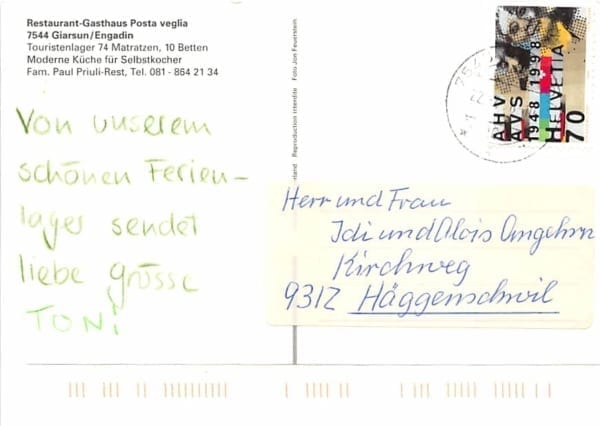 Restaurant-Gasthaus Posta veglia
7544 Giarsun/Engadin
Touristenlager 74 Matratzen, 10 Betten
Moderne Küche für Selbstkocher
Fam. Paul Priuli-Rest, Tel. 081 - 864 21 34
Von unserem
schönen Ferien-
lager sendet
liebe grüsse
TONi
Reproduction interdite Foto Jon Feuerstein
AHV
AVS
1948-1998
HELVETIA
70
Herr und Frau
Idi und Alois Angehrn
Kirchweg
9312 Häggenschwil